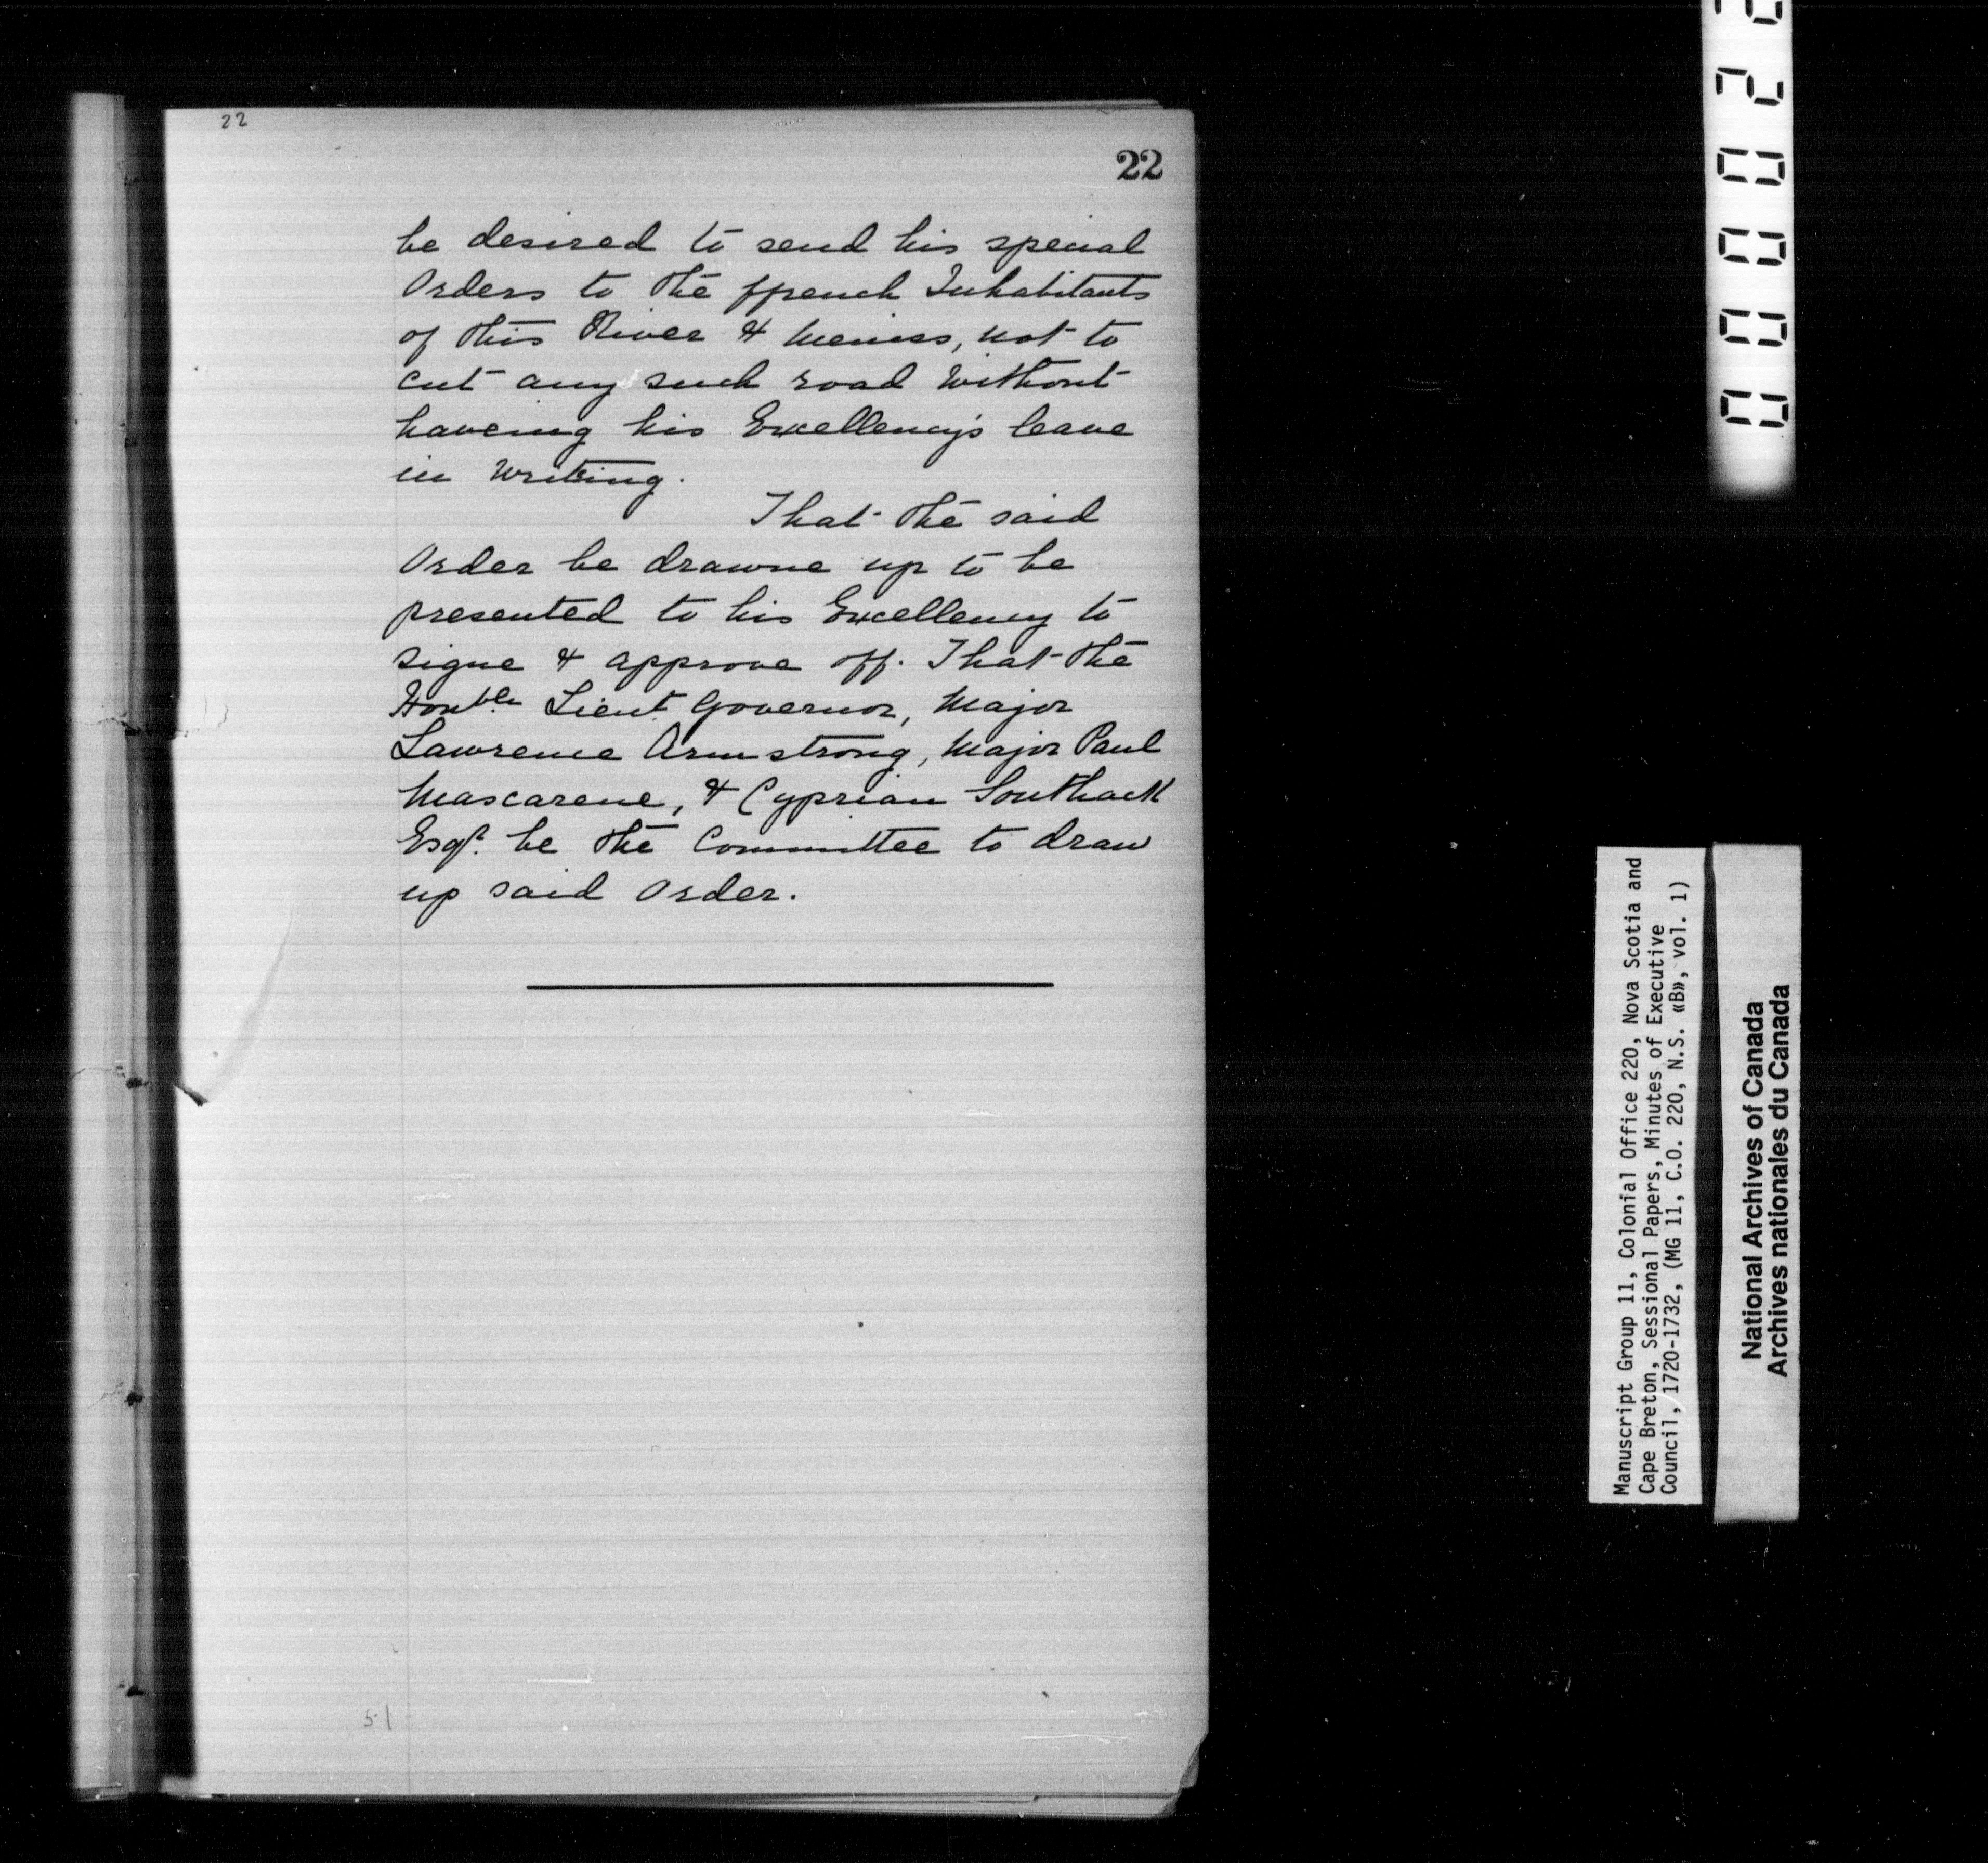 22
22
be desired to send his special
Orders to the ffrench Inhabitants
of this River & Meniss, not to
cut any such road without
haveing his Excellency's leave
in Writting.
That the said
Order be drawne up to be
presented to his Excellency to
signe & approve off. That the
Honble Lieut Governor, Major
Lawrence Armstrong, Major Paul
Mascarene, & Cyprian Southack
Esqr. be the Committee to draw
up said Order.
51
00002
Manuscript Group 11, Colonial Office 220, Nova Scotia and
Cape Breton, Sessional Papers, Minutes of Executive
Council, 1720-1732, (MG 11, C.O. 220, N.S. «B», vol. 1)
National Archives of Canada
Archives nationales du Canada